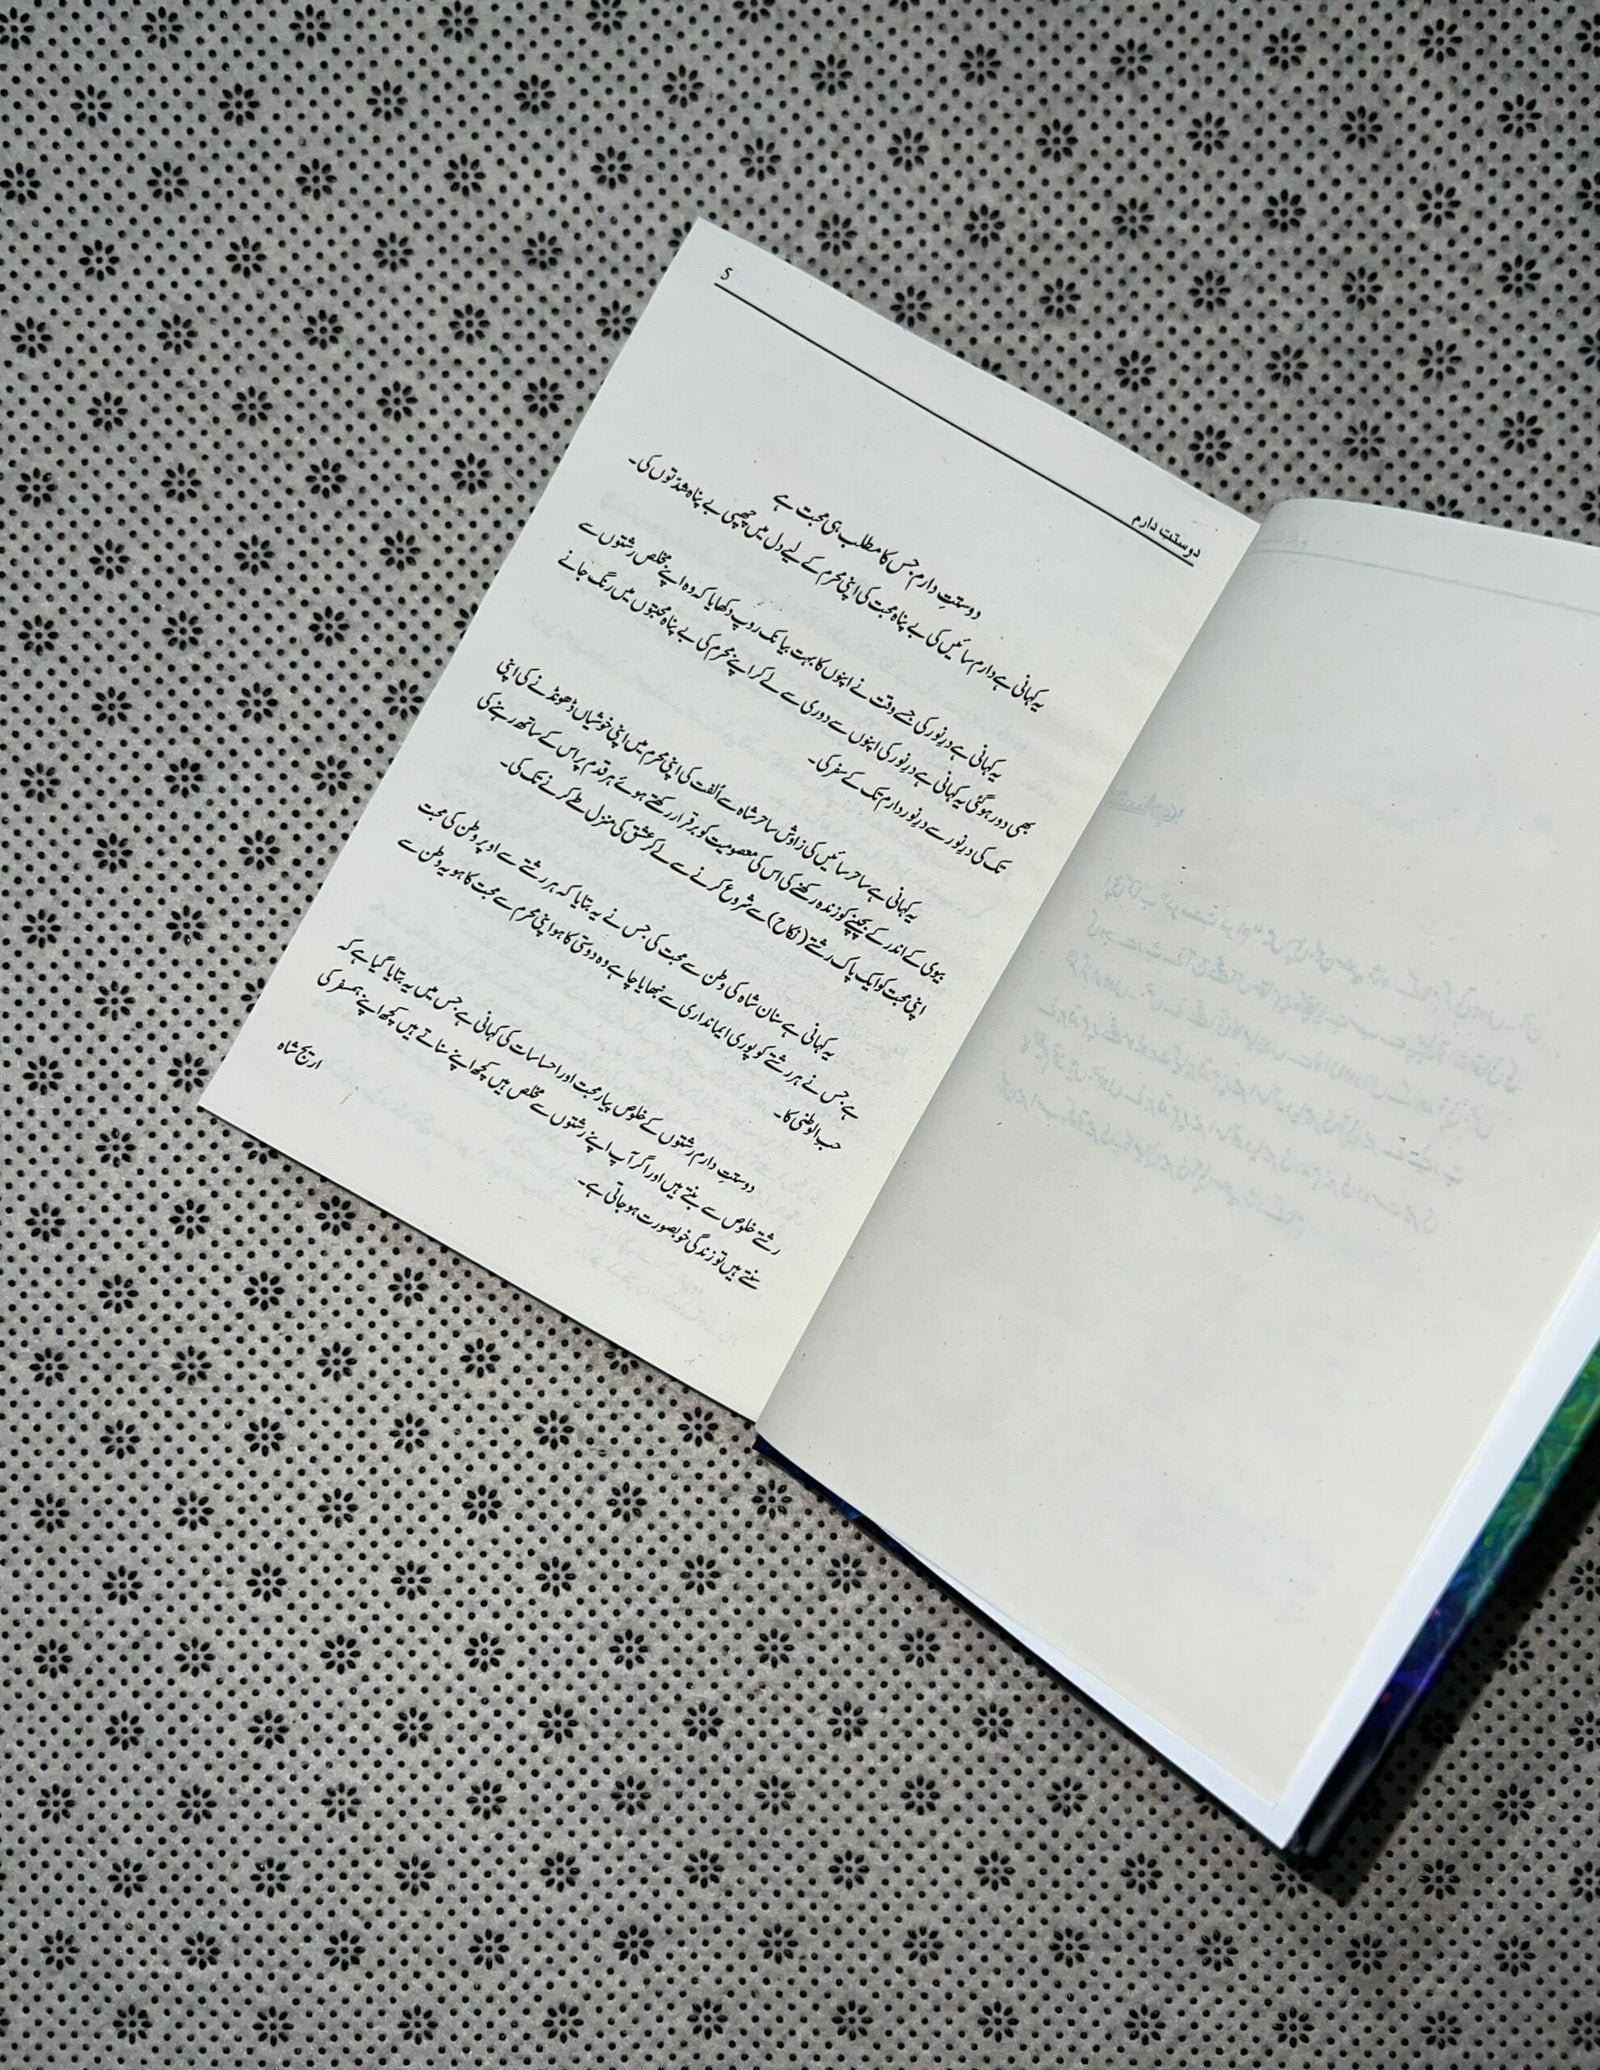 دوستت دارم
5
دوستتِ دارم جس کا مطلب ہی محبت ہے
یہ کہانی ہے دارم سائیں کی بے پناہ محبت کی اپنی محرم کے لیے دل میں چھپی بے پناہ شدّتوں کی۔
یہ کہانی ہے درِ نور کی جسے وقت نے اپنوں کا بہت بیانک روپ دکھایا کہ وہ اپنے مخلص رشتوں سے
بھی دور ہو گئی یہ کہانی ہے درِ نور کی اپنوں سے دوری سے لے کر اپنے محرم کی بے پناہ محبتوں میں رنگ جانے
تک کی درِ نور سے درِ نور دارم تک کے سفر کی۔
یہ کہانی ہے ساحر سائیں کی زاوش ساحر شاہ سے اُلفت کی اپنی محرم میں اپنی خوشیاں ڈھونڈنے کی اپنی
بیوی کے اندر کے بچپنے کو زندہ رکھنے کی اس کی معصومیت کو برقرار رکھتے ہوئے ہر قدم پر اس کے ساتھ رہنے کی
اپنی محبت کو ایک پاک رشتے (نکاح) سے شروع کرنے سے لے کر عشق کی منزل طے کرنے تک کی۔
یہ کہانی ہے سنان شاہ کی وطن سے محبت کی جس نے یہ بتایا کہ ہر رشتے سے اوپر وطن کی محبت
ہے جس نے ہر رشتے کو پوری ایمانداری سے نبھایا چاہے وہ دوستی کا ہو اپنی محرم سے محبت کا ہو یہ وطن سے
حب الوطنی کا۔
دوستتِ دارم رشتوں کے خلوص پیار محبت اور احساسات کی کہانی ہے جس میں یہ بتایا گیا ہے کہ
رشتے خلوص سے بنتے ہیں اور اگر آپ اپنے رشتوں سے مخلص ہیں کچھ اپنے سناتے ہیں کچھ اپنے ہمسفر کی
سنتے ہیں تو زندگی خوبصورت ہو جاتی ہے۔
اریج شاہ